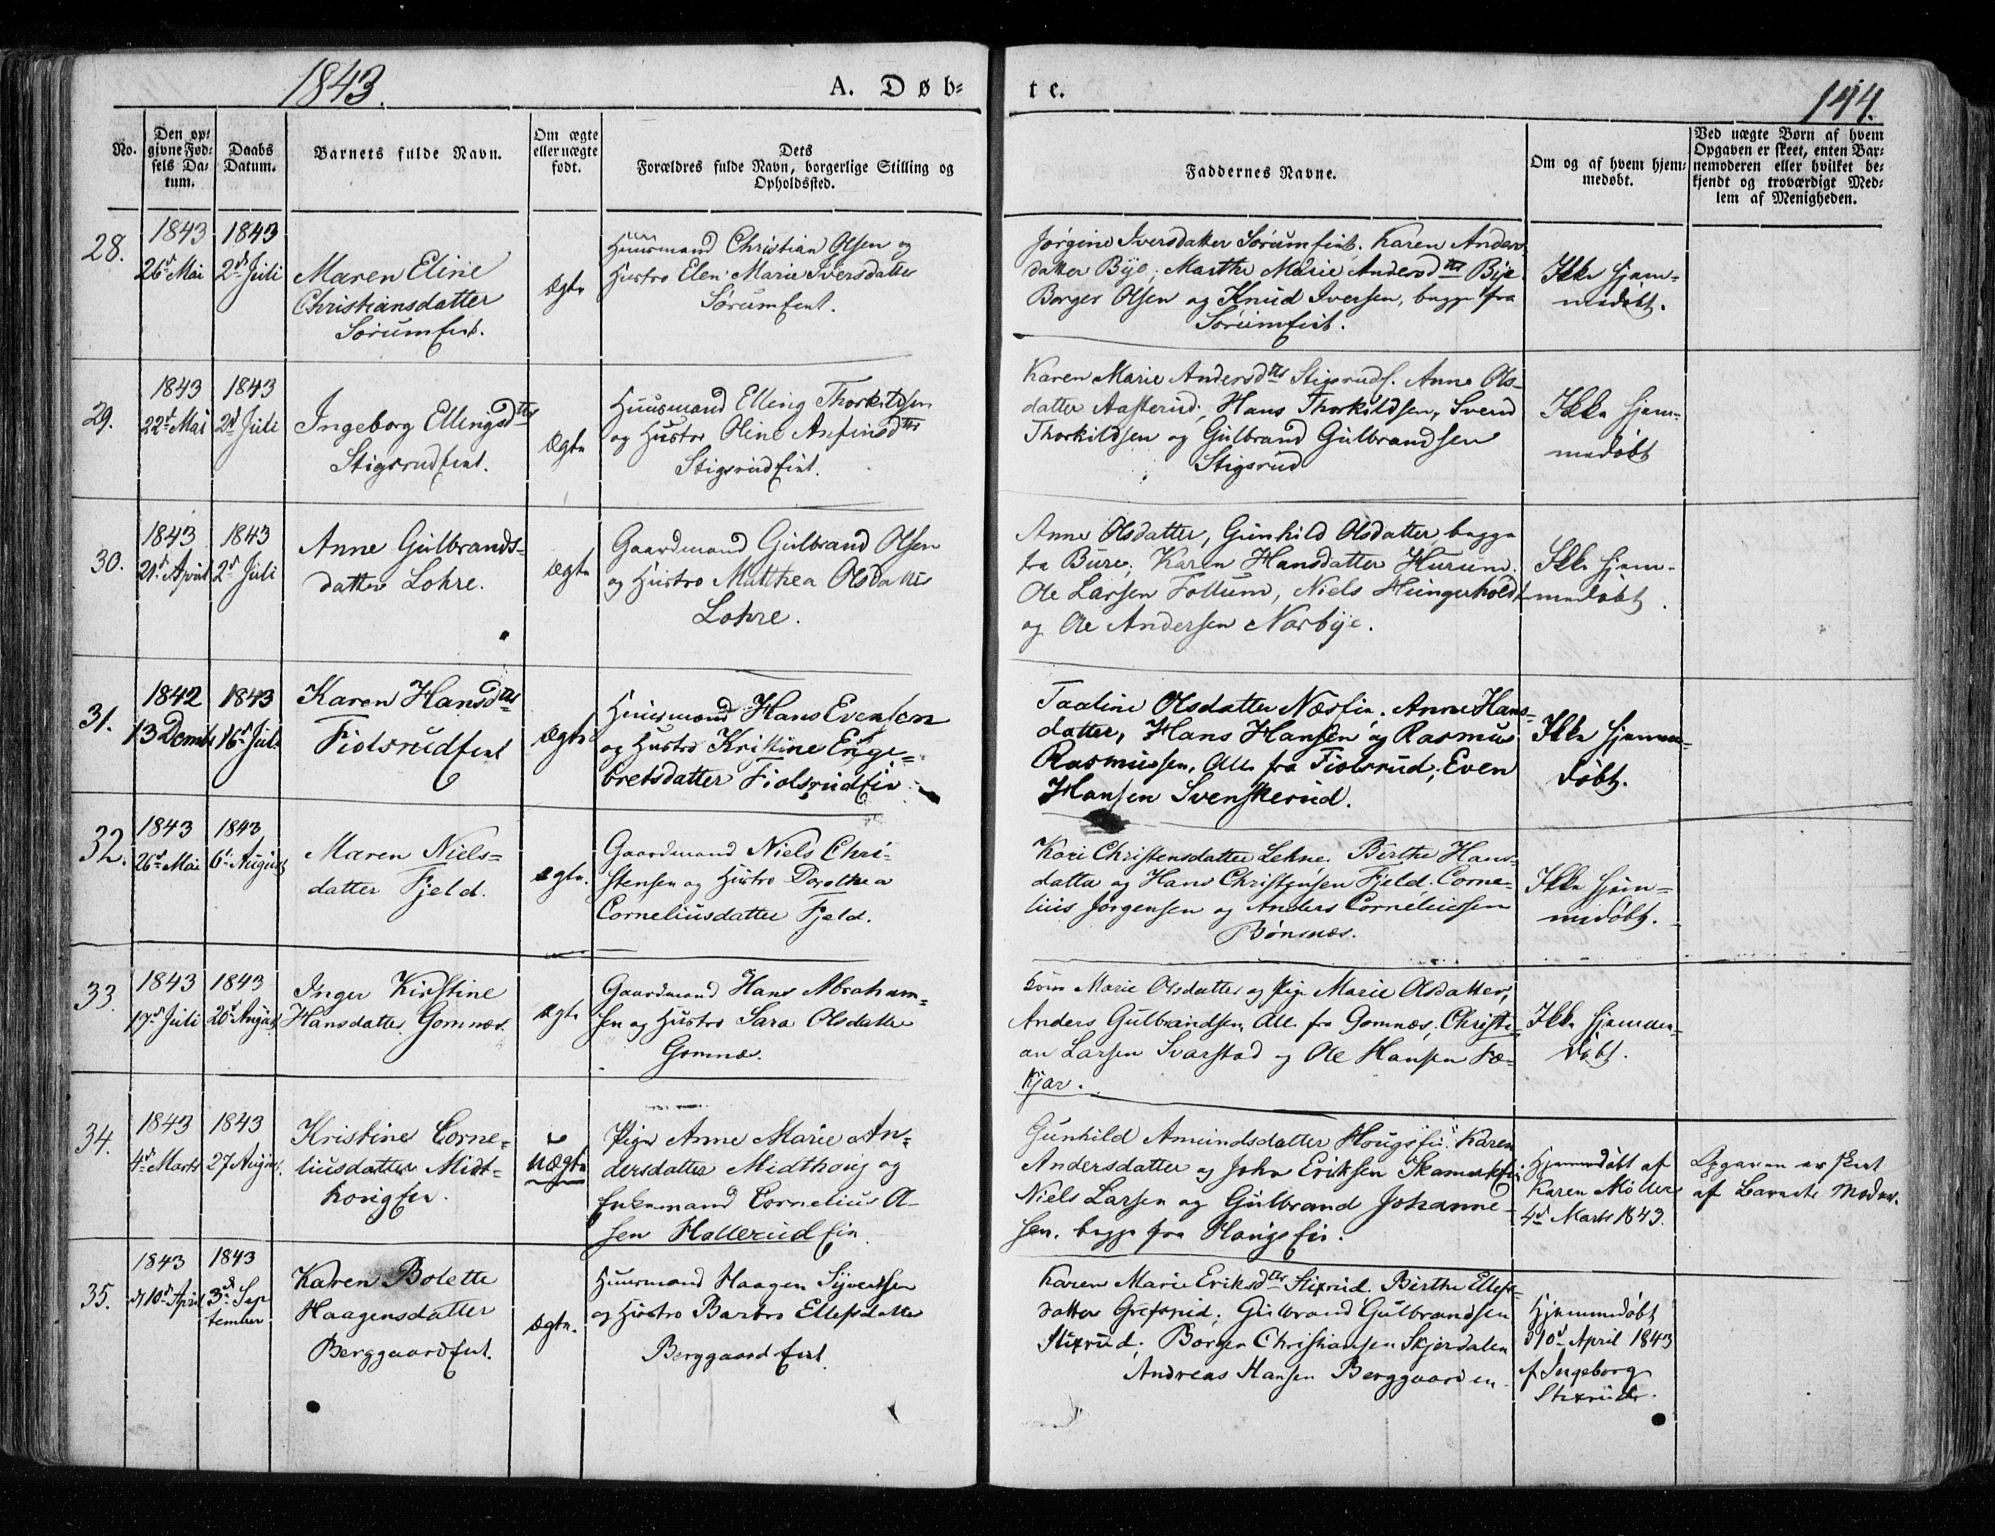 1843.
A. Døb-
te.
144.
No.
Den op-
givne Fød-
sels Da-
tum.
Daabs
Datum.
Barnets fulde Navn.
Om ægte
eller uægte
født.
Dets
Forældres fulde Navn, borgerlige Stilling og
Opholdssted.
Faddernes Navne.
Om og af hvem hjem-
medøbt.
Ved uægte Børn af hvem
Opgaven er skeet, enten Bar-
nemoderen eller hvilket be-
kjendt og troværdigt Med-
lem af Menigheden.
28.
1843
26d Mai
1843
2d Juli
Maren Eline
Christiansdatter
Sørumeiet.
ægte
Huusmand Christian Olsen og
Hustro Elen Marie Iversdatter
Sørumeiet.
Jørgine Iversdatter Sørumeiet. Karen Anders-
datter Bye; Marthe Marie Andersdtr Bye
Borger Olsen og Knud Iversen, begge fra
Sørumeiet.
Ikke hjem-
medøbt.
29.
1843
22d Mai
1843
2d Juli
Ingeborg Ellingsdtr
Stigsrudeiet.
ægte
Huusmand Elling Thorkildsen
og Hustro Oline Anfinsdtr
Stigsrudeiet.
Karen Marie Andersdtr Stigsruds. Anne Ols-
datter Aasterud; Hans Thorkildsen, Svend
Thorkildsen og Gulbrand Gulbrandsen
Stigsrud
Ikke hjem-
medøbt
30.
1843
21d April
1843
2d Juli
Anne Gulbrands-
datter Lohre.
ægte
Gaardmand Gulbrand Olsen
og Hustro Matthea Olsdatter
Lohre.
Anne Olsdatter, Gunhild Olsdatter, begge
fra Bure; Karen Hansdatter Hurum.
Ole Larsen Follum, Niels Hungerholdt
og Ole Andersen Norbye.
Ikke hjem-
medøbt.
31.
1842
13 Decmbr
1843
16d Juli
Karen Hansdtr
Fiolsrudeiet
ægte
Huusmand Hans Evensen
og Hustro Kristine Enge-
bretsdatter Fiolsrudeie
Taaline Olsdatter Næseie. Anne Hans-
datter, Hans Hansen og Rasmus
Rasmussen, Alle fra Fiolsrud; Even
Hansen Svenskerud.
Ikke hjemme-
døbt.
32.
1843
26d Mai
1843
6d August
Maren Niels-
datter Fjeld.
ægte.
Gaardmand Niels Chri-
stensen og Hustro Dorothea
Corneliusdatter Fjeld.
Kari Christensdatter Lehne. Birthe Hans-
datter og Hans Christensen Fjeld. Corne-
lius Jørgensen og Anders Corneliussen
Bønsnæs.
Ikke hjem-
medøbt.
33.
1843
17d Juli
1843
20d August
Inger Kirstine
Hansdatter Gomnæs.
ægte
Gaardmand Hans Abraham-
sen og Hustro Sara Olsdatter
Gomnæs.
Kone Marie Olsdatter og Pige Marie Olsdatter,
Anders Gulbrandsen, Alle fra Gomnæs. Christi-
an Larsen Svarstad og Ole Hansen Fæ-
kjær.
Ikke hjemme-
døbt.
34.
1843
4d Marts
1843
27 August.
Kristine Corne-
liusdatter Midt-
hougeie.
uægte
Pige Anne Marie An-
dersdatter Midthoug og
Enkemand Cornelius A-
sen Hallerudeie
Gunhild Amundsdatter Hougseie. Karen
Andersdatter og John Eriksen
Niels Larsen og Gulbrand Johanne-
sen, begge fra Hougseie.
Hjemmedøbt af
Karen Møller
4d Marts 1843.
Opgaven er skeet
af Barnets Moder.
35.
1843
d 10d April
1843
3d Sep-
tember
Karen Bolette
Haagensdatter
Berggaardeiet.
ægte.
Huusmand Haagen Syversen
og Hustro Barbro Ellefsdatter
Berggaardeiet
Karen Marie Eriksdtr Stixrud. Birthe Ellefs-
datter Grefsrud; Gulbrand Gulbrandsen
Stixrud; Borger Christiansen Skjerdalen
Andreas Hansen Berggaarden
Hjemmedøbt
d 10d April 1843
af Ingeborg
Stixrud.